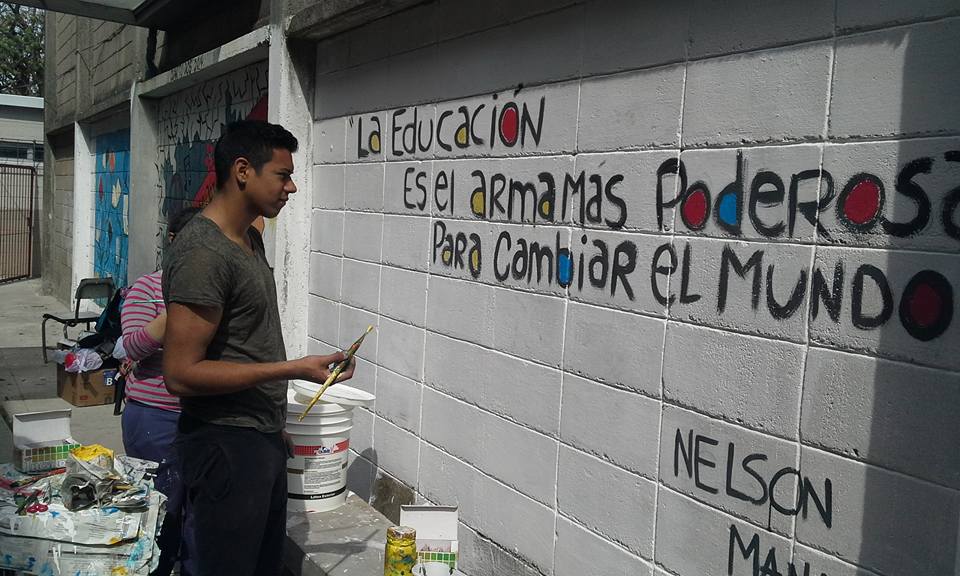 "La Educación
Es el arma Más Poderosa
Para Cambiar el Mundo
NELSON
MAN